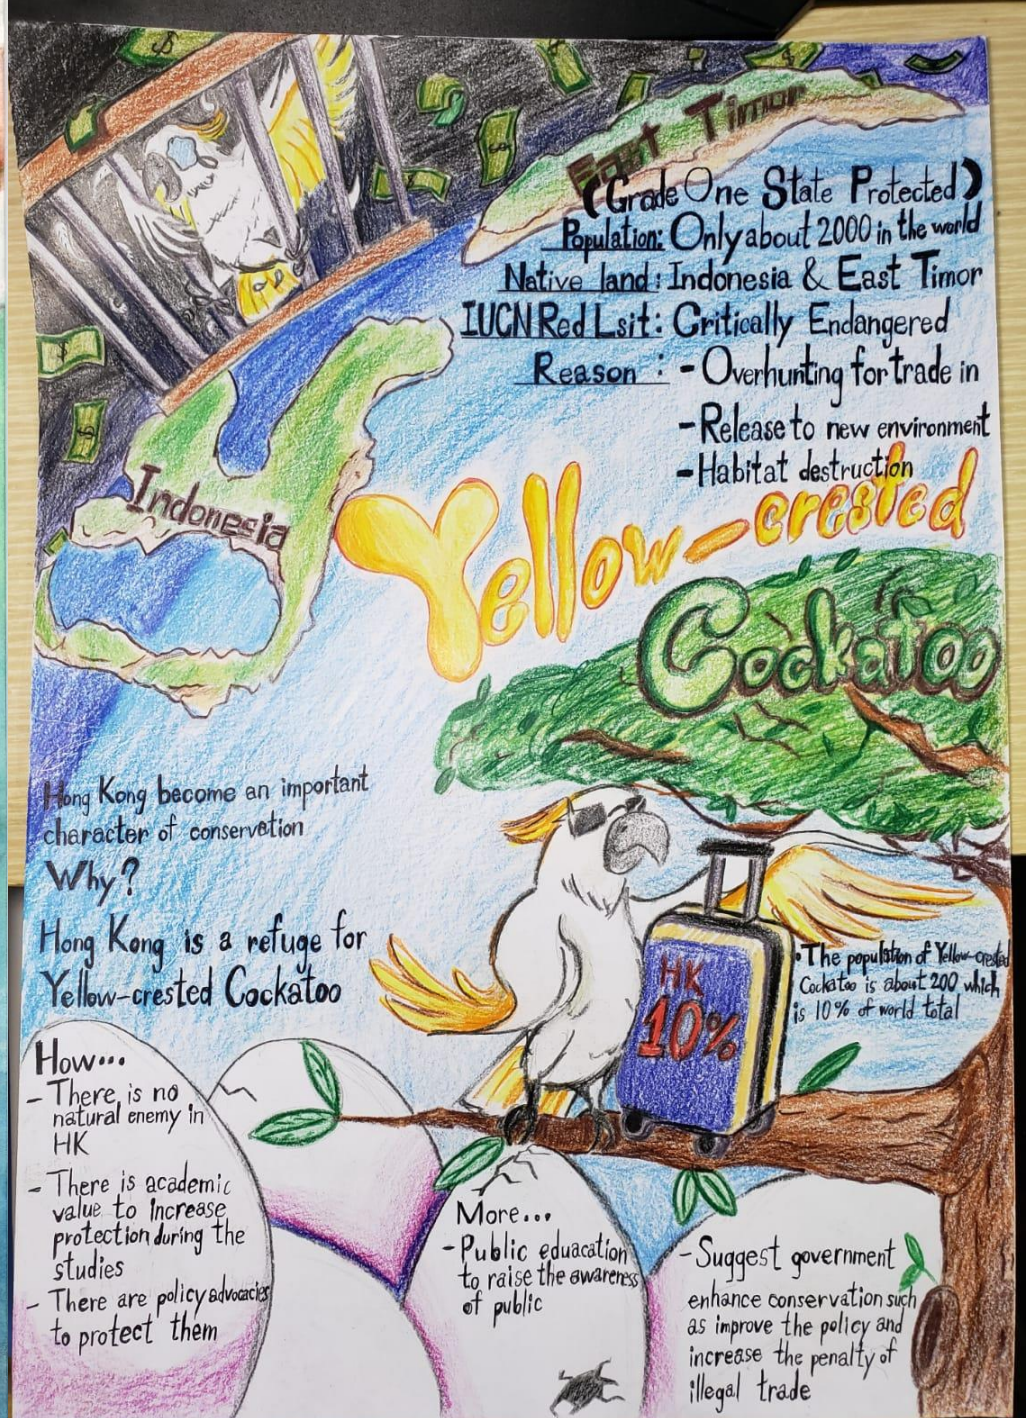 East Timor
(Grade One State Protected)
Population: Only about 2000 in the world
Native land: Indonesia & East Timor
IUCN Red Lsit: Critically Endangered
Reason : - Overhunting for trade in
- Release to new environment
- Habitat destruction
Indonesia
Yellow-crested
Cockatoo
Hong Kong become an important
character of conservation
Why?
Hong Kong is a refuge for
Yellow-crested Cockatoo
HK
10%
• The population of Yellow-crested
Cockatoo is about 200 which
is 10% of world total
How...
- There is no
natural enemy in
HK
- There is academic
value to increase
protection during the
studies
- There are policy advocacies
to protect them
More...
- Public eduacation
to raise the awareness
of public
- Suggest government
enhance conservation such
as improve the policy and
increase the penalty of
illegal trade